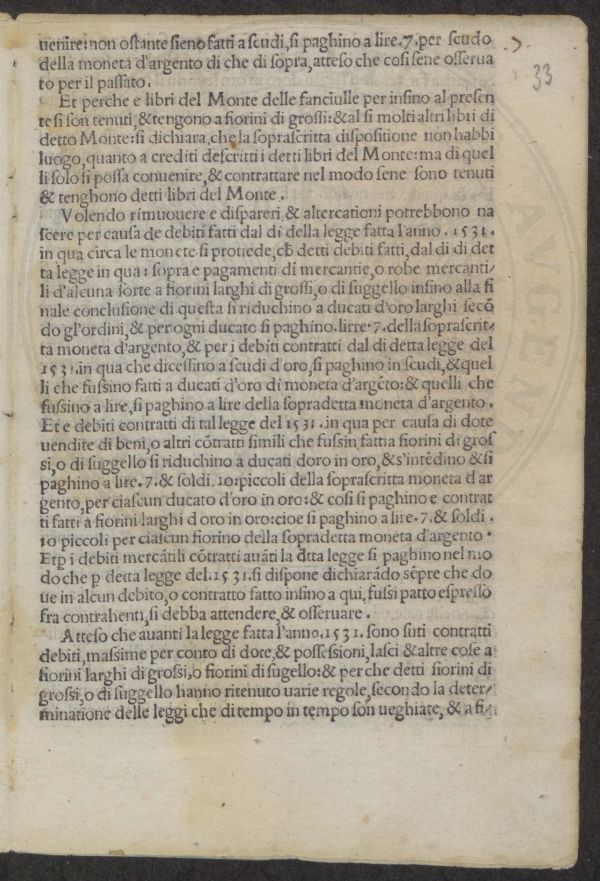 uenire: non ostante sieno fatti a scudi, si paghino a lire .7. per scudo
della moneta d'argento di che di sopra, atteso che cosi sene osserua
to per il passato.
Et perche e libri del Monte delle fanciulle per insino al presen
te si son tenuti, & tengono a fiorini di grossi: & al si molti altri libri di
detto Monte: si dichiara, che la soprascritta dispositione non habbi
luogo, quanto a crediti descritti i detti libri del Monte: ma di quel
li solo si possa conuenire, & contrattare nel modo sene sono tenuti
& tenghono detti libri del Monte.
Volendo rimuouere e dispareri, & altercationi potrebbono na
scere per causa de debiti fatti dal di della legge fatta l'anno. 1531.
in qua circa le monete si prouede, che detti debiti fatti, dal di di det
ta legge in qua: sopra e pagamenti di mercantie, o robe mercanti/
li d'alcuna sorte a fiorini larghi di grossi, o di suggello insino alla fi
nale conclusione di questa si riduchino a ducati d'oro larghi secō
do gl'ordini, & per ogni ducato si paghino. lirre .7. della soprascrit/
ta moneta d'argento, & per i debiti contratti dal di detta legge del
1531. in qua che dicessino a scudi d'oro, si paghino in scudi, & quel
li che fussino fatti a ducati d'oro di moneta d'argēto: & quelli che
fussino a lire, si paghino a lire della sopradetta moneta d'argento.
Et e debiti contratti di tal legge del 1531. in qua per causa di dote
uendite di beni, o altri cōtratti simili che fussin fatti a fiorini di gros
si, o di suggello si riduchino a ducati doro in oro, & s'intēdino & si
paghino a lire .7. & soldi. 10: piccoli della soprascritta moneta d'ar
gento, per ciascun ducato d'oro in oro: & cosi si paghino e contrat
ti fatti a fiorini larghi d'oro in oro: cioe si paghino a lire .7. & soldi.
10 piccoli per ciascun fiorino della sopradetta moneta d'argento.
Et p i debiti mercātili cōtratti auāti la dtta legge si paghino nel mo
do che p detta legge del .1531. si dispone dichiarādo sēpre che do
ue in alcun debito, o contratto fatto insino a qui, fussi patto espresso
fra contrahenti, si debba attendere, & osseruare.
Atteso che auanti la legge fatta l'anno. 1531. sono suti contratti
debiti, massime per conto di dote, & possessioni, lasci & altre cose a
fiorini larghi di grossi, o fiorini di sugello: & per che detti fiorini di
grossi, o di suggello hanno ritenuto uarie regole, secondo la deter/
minatione delle leggi che di tempo in tempo son ueghiate, & a fi/
33
AVGEN